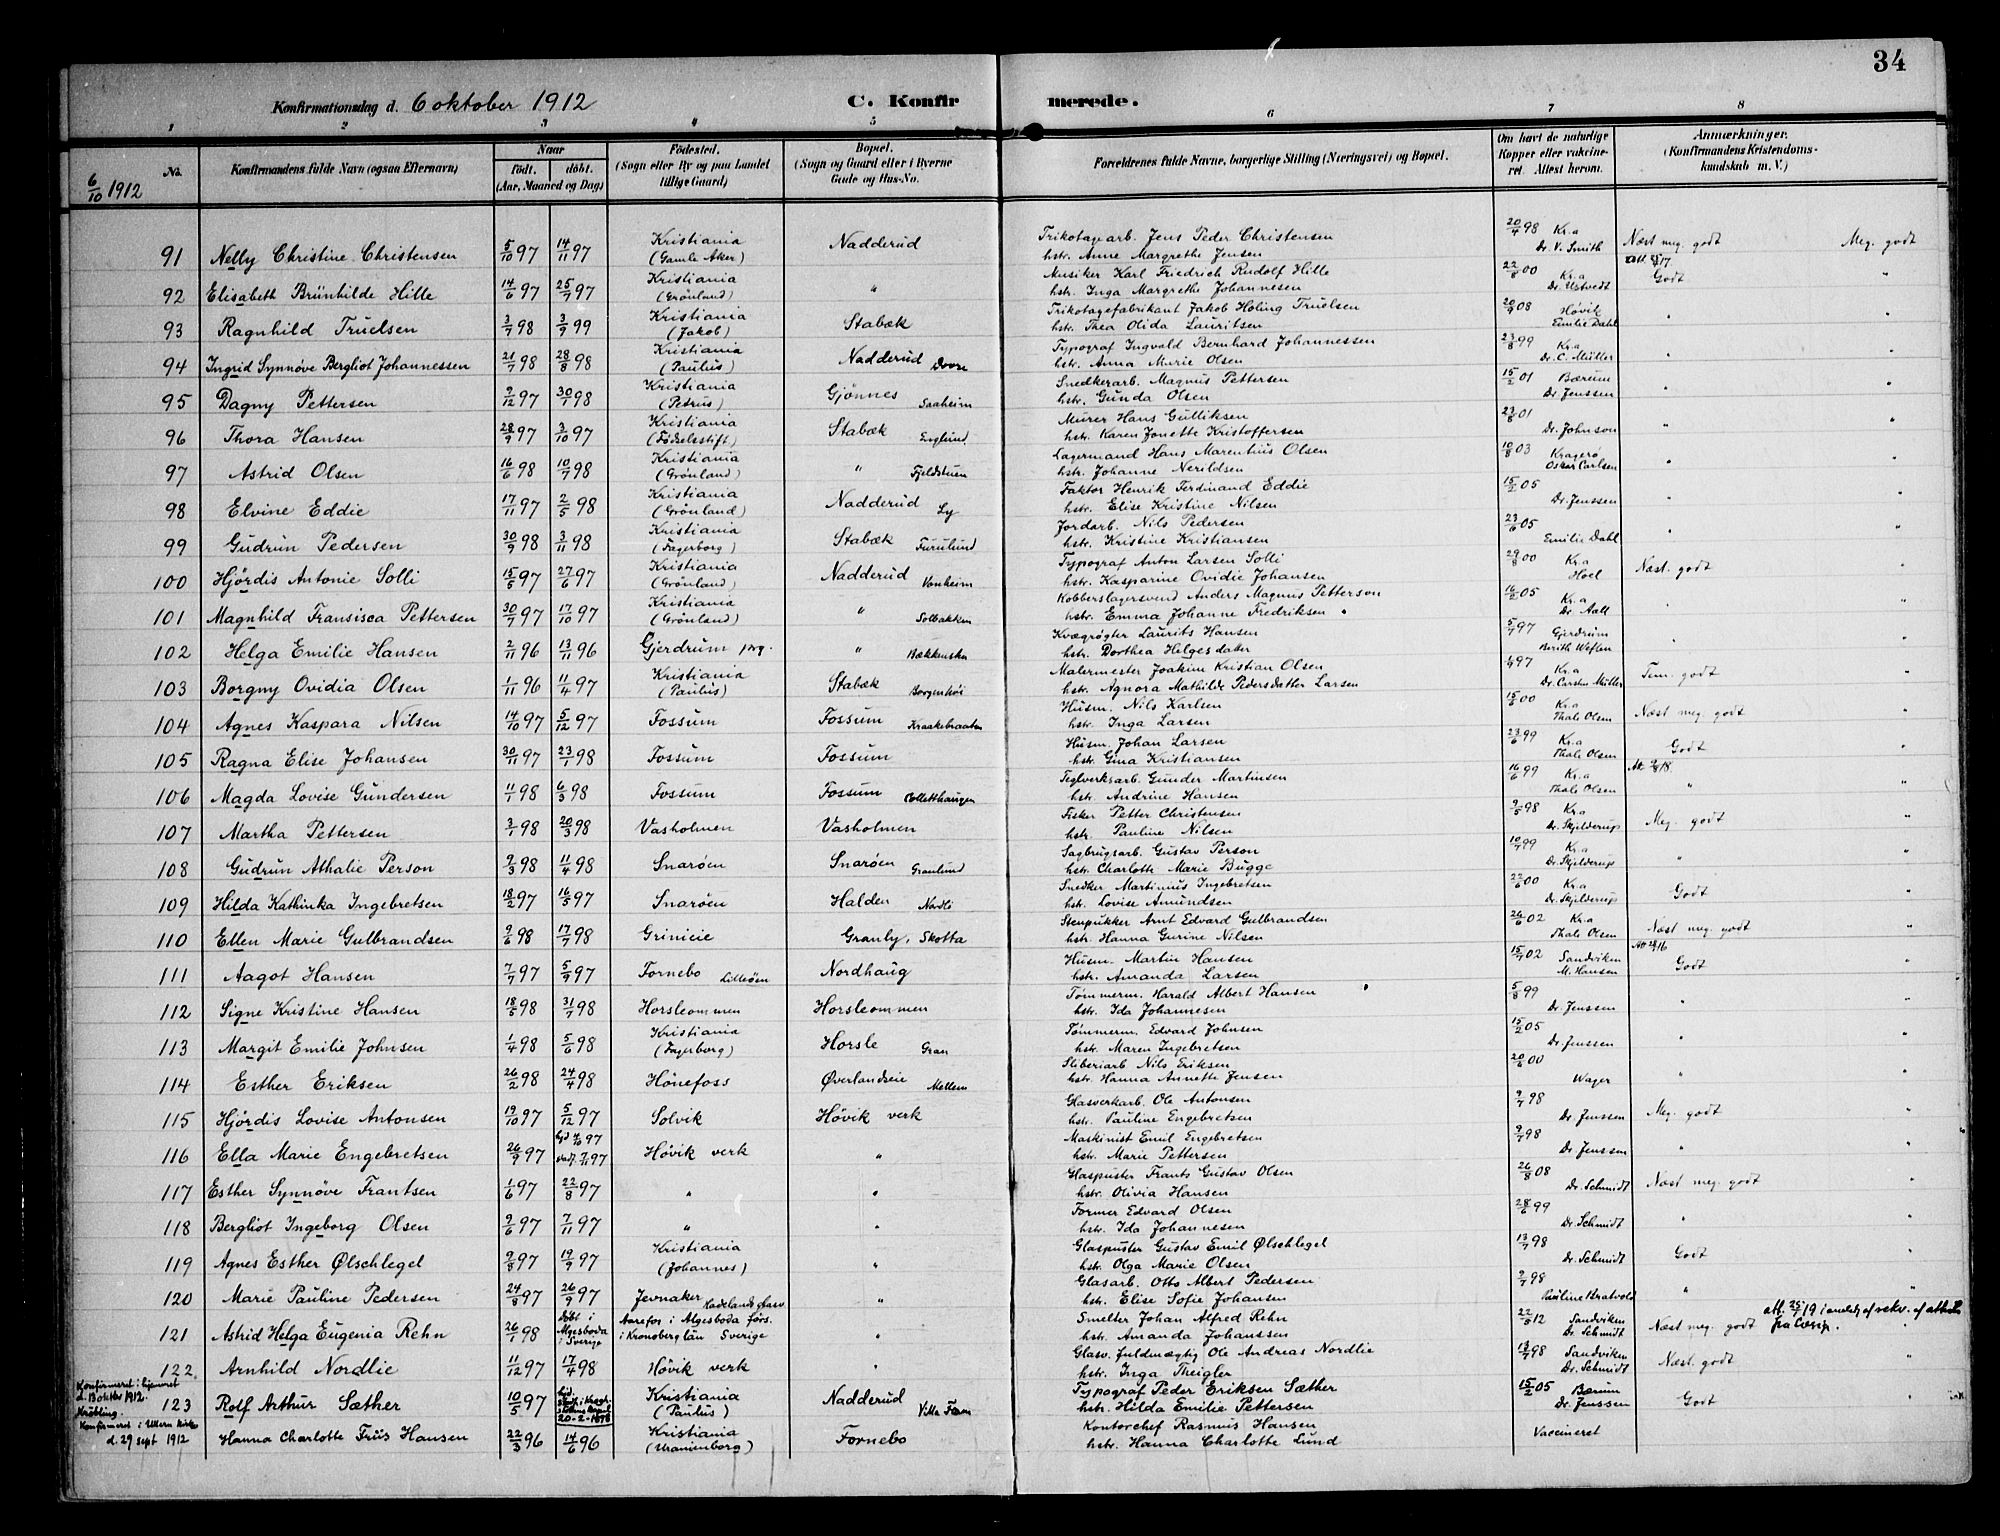 34
Konfirmationsdag d. 6 oktober 1912 C. Konfirmerede.
1 2 3 4 5 6 7 8
No. Konfirmandens fulde Navn (ogsaa Efternavn) Naar født. døbt. (Aar, Maaned og Dag) Fødested. (Sogn eller By og paa Landet tillige Gaard) Bopæl. (Sogn og Gaard eller i Byerne Gade og Hus-No. Forældrenes fulde Navne, borgerlige Stilling (Næringsvei) og Bopæl. Om havt de naturlige Kopper eller vakcineret. Attest herom. Anmærkninger. (Konfirmandens Kristendomskundskab m. V.)
6/10 1912
91 Nelly Christine Christensen 5/10 97 14/11 97 Kristiania (Gamle Aker) Nadderud Trikotagearb. Jens Peder Christensen hstr. Anne Margrethe Jensen 20/4 98 Kr.a Dr. V. Smith Næst meg. godt Meg. godt
92 Elisabeth Brünhilde Hille 14/6 97 25/7 97 Kristiania (Grönland) " Musiker Karl Friedrich Rudolf Hille hstr. Inga Margrethe Johannesen 22/8 00 Kr.a Dr. Ustvedt Godt "
93 Ragnhild Truelsen 3/7 98 3/9 99 Kristiania (Jakob) Stabæk Trikotagefabrikant Jakob Höling Truelsen hstr. Thea Olida Lauritsen 20/9 08 Høvik Emilie Dahl "
94 Ingrid Synnöve Bergliot Johannessen 21/7 98 28/8 98 Kristiania (Paulus) Nadderud Dovre Typograf Ingvald Bernhard Johannessen hstr. Anna Marie Olsen 23/8 99 Kr.a Dr. C. Müller " "
95 Dagny Pettersen 2/12 97 30/1 98 Kristiania (Petrus) Gjönnes Saaheim Snedkerarb. Magnus Pettersen hstr. Gunda Olsen 15/2 01 Bærum Dr. Jenssen " "
96 Thora Hansen 28/9 97 3/10 97 Kristiania (Födselsstift) Stabæk Englund Murer Hans Gulliksen hstr. Karen Jonette Kristoffersen 23/8 01 Dr. Johnson " "
97 Astrid Olsen 16/6 98 10/7 98 Kristiania (Grönland) " Fjeldstuen Lagermand Hans Marenthius Olsen hstr. Johanne Nerildsen 10/8 03 Kragerø Oskar Carlsen "
98 Elvine Eddie 17/11 97 2/5 98 Kristiania (Grönland) Nadderud Ly Faktor Henrik Ferdinand Eddie hstr. Elise Kristine Nilsen 15/2 05 Dr. Jenssen " "
99 Gudrun Pedersen 30/9 98 3/11 98 Kristiania (Fagerborg) Stabæk Furulund Jordarb. Nils Pedersen hstr. Kristine Kristiansen 23/6 05 Emilie Dahl " "
100 Hjördis Antonie Solli 15/5 97 27/6 97 Kristiania (Grönland) Nadderud Vonheim Typograf Anton Larsen Solli hstr. Kasparine Ovidie Johansen 29/8 00 Kr.a Hoel Næst. godt "
101 Magnhild Fransisca Pettersen 30/7 97 17/10 97 Kristiania (Grönland) " Solbakken Kobberslagersvend Anders Magnus Petterson hstr. Emma Johanne Fredriksen 16/2 05 Kr.a Dr. Aall " "
102 Helga Emilie Hansen 2/11 96 13/11 96 Gjerdrum prg. " Bækkenster Kvægrögter Laurits Hansen hstr. Dorthea Helgesdater 5/7 97 Gjerdrum Berith Weflen " "
103 Borgny Ovidia Olsen 1/11 96 11/4 97 Kristiania (Paulus) Stabæk Borgenhöi Malermester Joakim Kristian Olsen hstr. Agnora Mathilde Pedersdatter Larsen 97 Kr.a Dr. Carsten Müller Tem. godt "
104 Agnes Kaspara Nilsen 14/10 97 5/12 97 Fossum Fossum Kraakebraaten Husm. Nils Karlsen hstr. Inga Larsen 15/6 00 Kr.a Thale Olsen Næst meg. godt "
105 Ragna Elise Johansen 30/11 97 23/1 98 Fossum Fossum Husm. Johan Larsen hstr. Gina Kristiansen 23/6 99 Kr.a Thale Olsen Godt "
106 Magda Lovise Gundersen 11/1 98 6/3 98 Fossum Fossum Colletthaugen Teglverksarb. Gunder Martinsen hstr. Andrine Hansen 16/6 99 Kr.a Thale Olsen " "
107 Martha Pettersen 3/1 98 20/3 98 Vasholmen Vasholmen Fisker Petter Christensen hstr. Pauline Nilsen 9/5 98 Kr.a Dr. Skjelderup Meg. godt "
108 Gudrun Athalie Person 2/3 98 11/4 98 Snaröen Snaröen Granlund Sagbrugsarb. Gustav Person hstr. Charlotte Marie Bugge 10/7 99 Kr.a Dr. Skjelderup " "
109 Hilda Kathinka Ingebretsen 18/2 97 16/5 97 Snaröen Halden Nordli Snedker Martinius Ingebretsen hstr. Lovise Amundsen 22/6 00 Kr.a Dr. Skjelderup Godt "
110 Ellen Marie Gulbrandsen 9/6 98 17/7 98 Grinieie Granly, Skotta Stenpukker Arnt Edvard Gulbrandsen hstr. Hanna Gurine Nilsen 26/6 02 Kr.a Thale Olsen Næst meg. godt "
111 Aagot Hansen 7/7 97 5/9 97 Fornebo Lilleöen Nordhaug Husm. Martin Hansen hstr. Amanda Larsen 15/7 02 Sandviken M. Hansen Godt "
112 Signe Kristine Hansen 18/5 98 31/7 98 Horsleommen Horsleommen Tømmerm. Harald Albert Hansen hstr. Ida Johannesen 5/8 99 Dr. Jenssen " "
113 Margit Emilie Johnsen 1/4 98 5/6 98 Kristiania (Fagerborg) Horsle Gran Tømmerm. Edvard Johnsen hstr. Maren Ingebretsen 15/2 05 Dr. Jenssen " "
114 Esther Eriksen 26/2 98 24/4 98 Hönefoss Øverlandseie Mellem Sliberiarb Nils Eriksen hstr. Hanna Annette Jensen 20/6 00 Wager " "
115 Hjördis Lovise Antonsen 19/10 97 5/12 97 Solvik Hövik verk Glasverkarb. Ole Antonsen hstr. Pauline Engebretsen 9/7 98 Dr. Jenssen Meg. godt "
116 Ella Marie Engebretsen 26/9 97 Hövik verk " Maskinist Emil Engebretsen hstr. Marie Pettersen 9/7 98 Dr. Jenssen " "
117 Esther Synnöve Frantsen 1/6 97 22/8 97 " " Glaspuster Frants Gustav Olsen hstr. Olivia Hansen 26/8 08 Dr. Schmidt Næst meg. godt "
118 Bergliot Ingeborg Olsen 9/6 97 7/11 97 " " Former Edvard Olsen hstr. Ida Johannesen 28/6 99 Dr. Schmidt " "
119 Agnes Esther Ølschlegel 9/8 97 19/9 97 Kristiania (Johannes) " Glaspuster Gustav Emil Ølschlegel hstr. Olga Marie Olsen 13/7 98 Dr. Schmidt Godt "
120 Marie Pauline Pedersen 24/8 97 26/9 97 Jevnaker Hadelands glasv. " Glasarb. Otto Albert Pedersen hstr. Elise Sofie Johansen 9/7 98 Pauline Bratvold " "
121 Astrid Helga Eugenia Rehn 26/1 98 Döbt i Algesboda i Sverige Aarefos i Algesboda förs. i Kronoberg län Sverige " Smelter Johan Alfred Rehn hstr. Amanda Johanssen 22/8 12 Sandviken Dr. Schmidt Næst meg. godt
122. Arnhild Nordlie 11/12 97 17/4 98 Hövik verk " Glasv. fuldmægtig Ole Andreas Nordlie hstr. Inga Theigler 13/7 98 Sandviken Dr. Schmidt Næst. godt "
Konfirmeret i hjemmet d. 13 oktbr 1912. Kröbling.
123 Rolf Arthur Sæther 10/5 97 20-2-1898 Kristiania (Paulus) Nadderud Villa Fram Typograf Peder Eriksen Sæther hstr. Hilda Emilie Pettersen 15/2 05 Bærum Dr. Jenssen Godt
Konfirmeret i Ullern kirke d. 29 sept 1912 Hanna Charlotte Friis Hansen 22/3 96 14/6 96 Kristiania (Uranienborg) Fornebo Kontorchef Rasmus Hansen hstr. Hanna Charlotte Lund Vaccineret